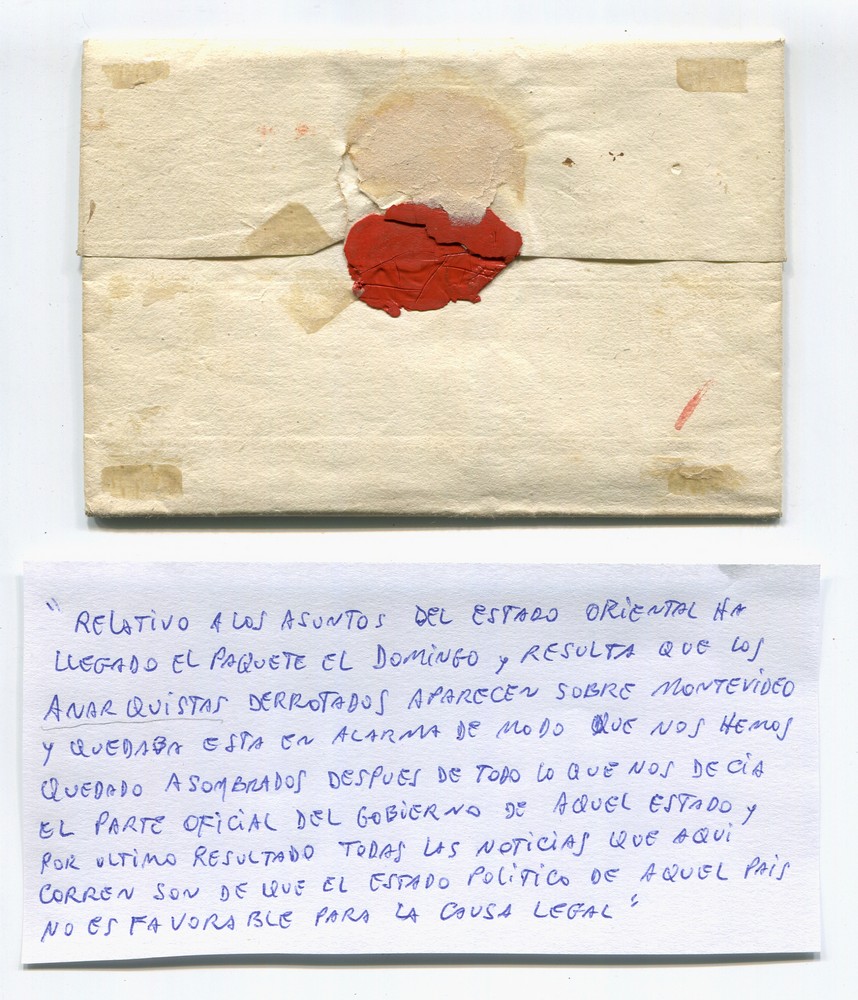 " RELATIVO A LOS ASUNTOS DEL ESTADO ORIENTAL HA
LLEGADO EL PAQUETE EL DOMINGO y RESULTA QUE LOS
ANARQUISTAS DERROTADOS APARECEN SOBRE MONTEVIDEO
Y QUEDABA ESTA EN ALARMA DE MODO QUE NOS HEMOS
QUEDADO ASOMBRADOS DESPUES DE TODO LO QUE NOS DECIA
EL PARTE OFICIAL DEL GOBIERNO DE AQUEL ESTADO y
POR ULTIMO RESULTADO TODAS LAS NOTICIAS QUE AQUI
CORREN SON DE QUE EL ESTADO POLITICO DE AQUEL PAIS
NO ES FAVORABLE PARA LA CAUSA LEGAL "